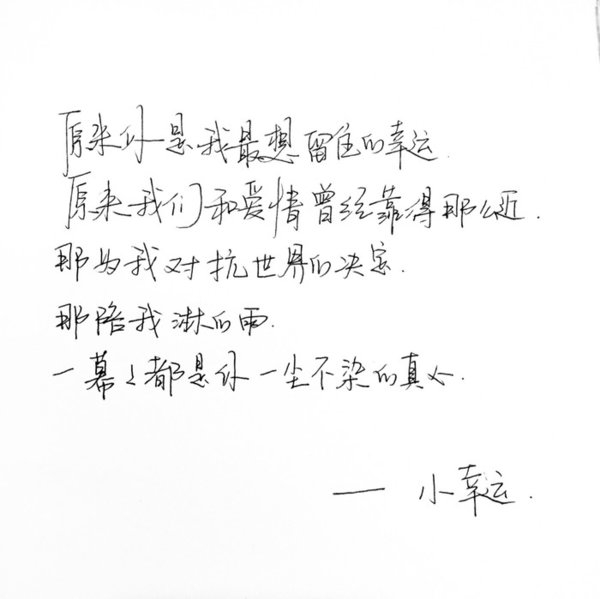 原来你是我最想留住的幸运
原来我们和爱情曾经靠得那么近.
那为我对抗世界的决定.
那陪我淋的雨.
一幕々都是你一尘不染的真心.
—— 小幸运.